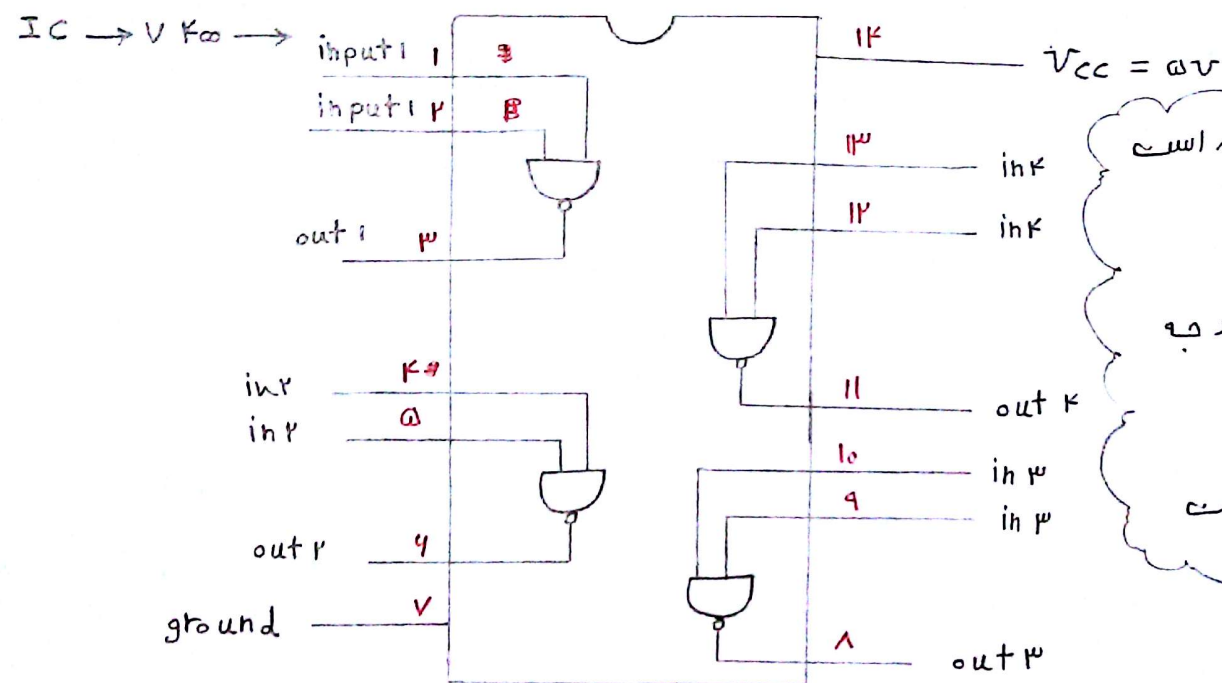 IC → V۴۰۰ →
input۱ ۱
input۱ ۲
out۱ ۳
in۲ ۴
in۲ ۵
out۲ ۶
ground ۷
۱۴ Vcc = ۵v
۱۳ in۴
۱۲ in۴
۱۱ out ۴
۱۰ in ۳
۹ in ۳
۸ out ۳
است